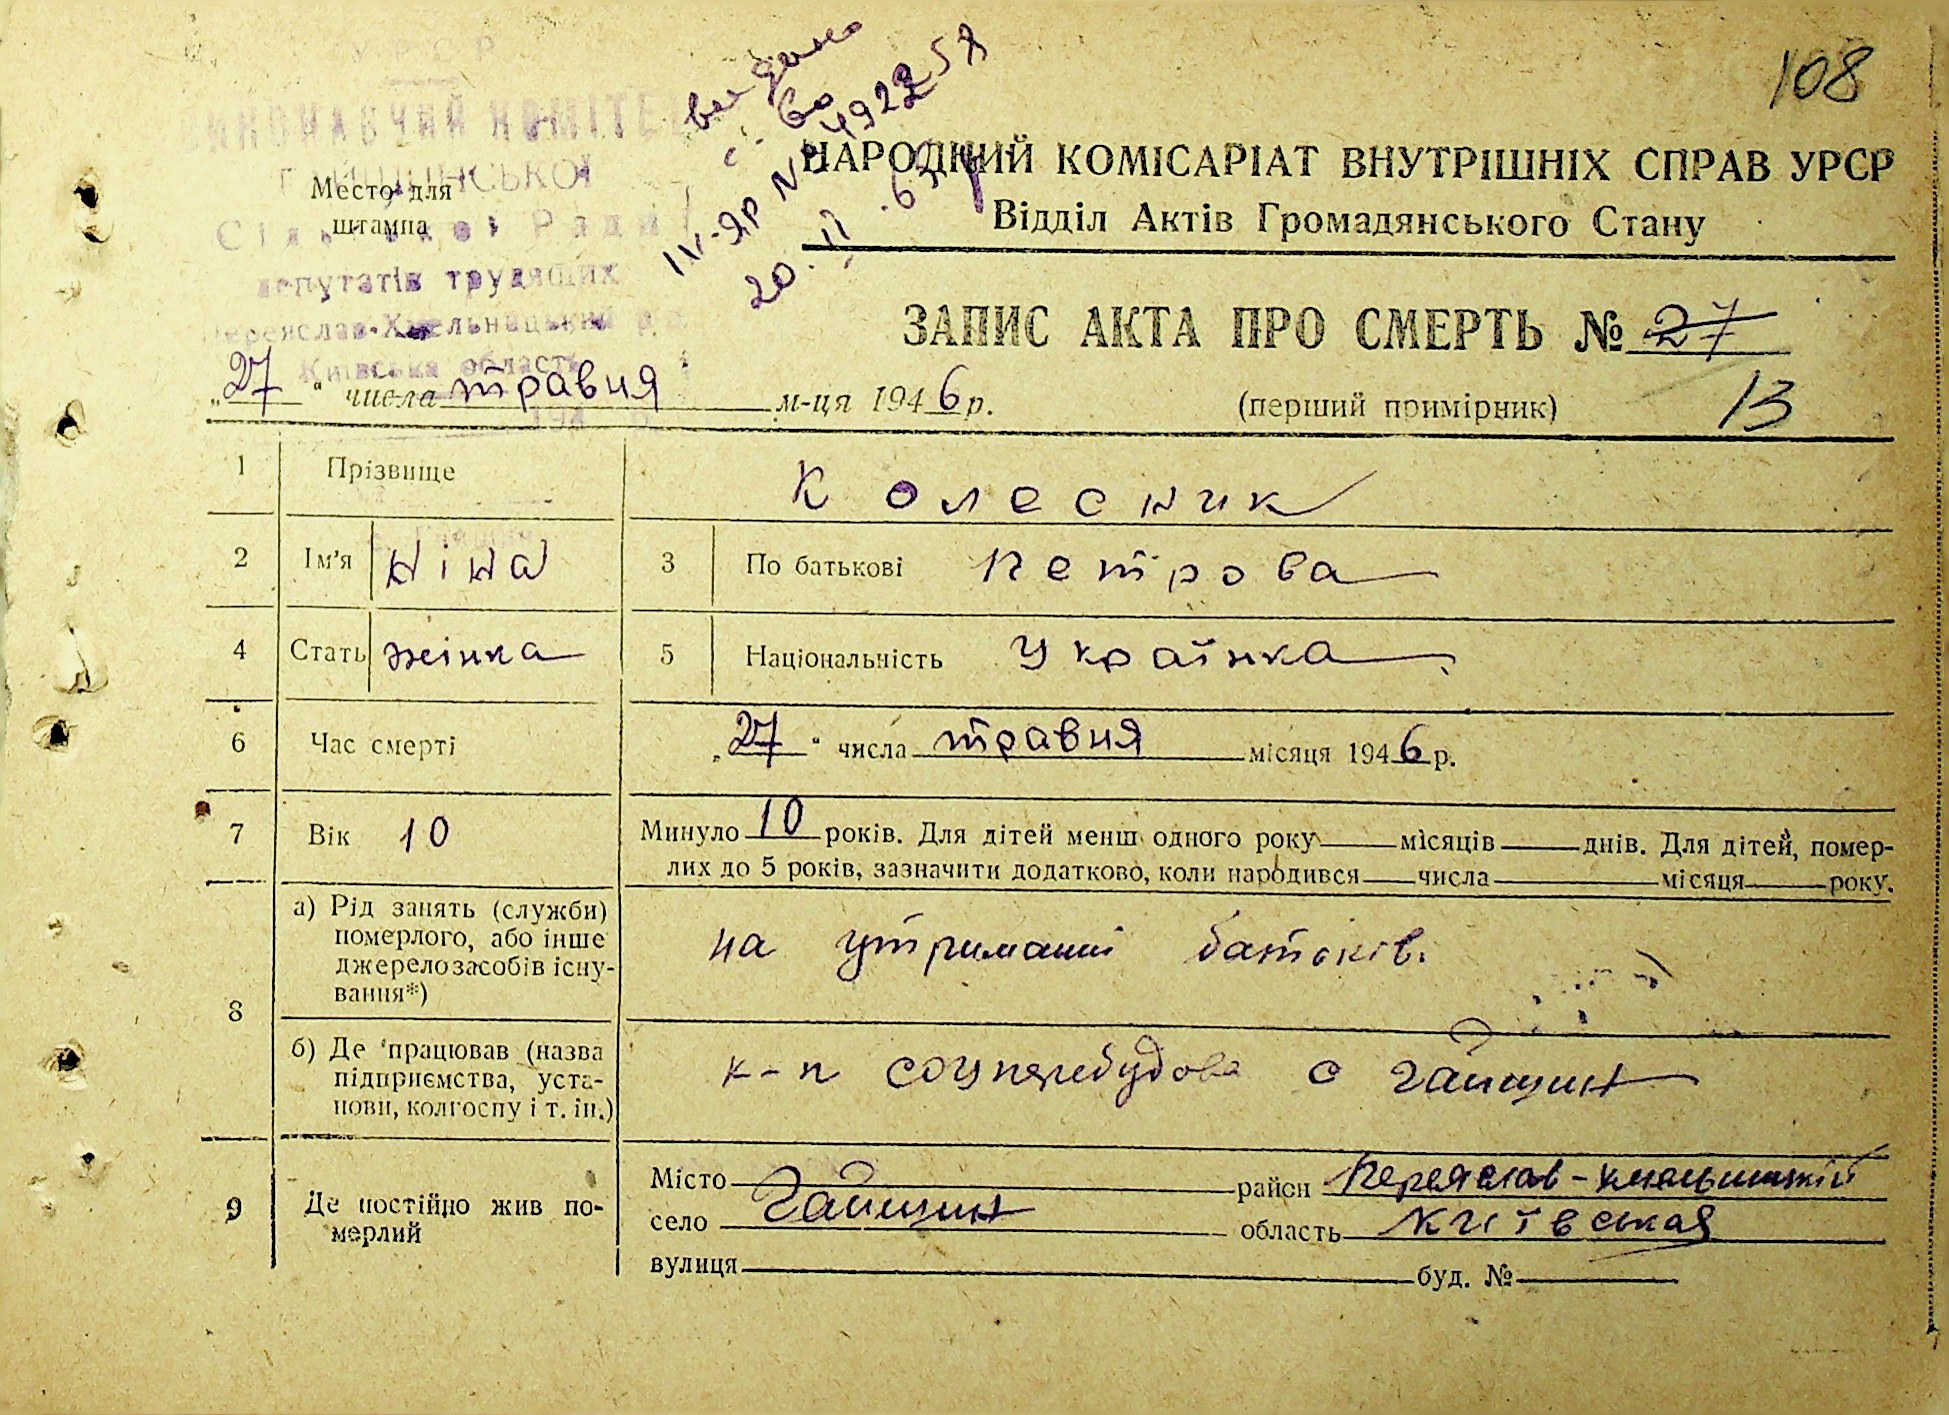 108
видано
с. во
IV-ЯР №
20. II
НАРОДНИЙ КОМІСАРІАТ ВНУТРІШНІХ СПРАВ УРСР
Відділ Актів Громадянського Стану
УРСР
ВИКОНАВЧИЙ КОМІТЕТ
Место для
штампа
Сільської Ради
депутатів трудящих
Переяслав-Хмельницький р.
Київська область
194
ЗАПИС АКТА ПРО СМЕРТЬ № 27
„27“ числа травня м-ця 1946 р.
(перший примірник)
13
1 Прізвище Колесник
2 Ім'я Ніна 3 По батькові Петрова
4 Стать жінка 5 Національність Українка
6 Час смерті „27“ числа травня місяця 1946 р.
7 Вік 10 Минуло 10 років. Для дітей менш одного року місяців днів. Для дітей, помер-
лих до 5 років, зазначити додатково, коли народився числа місяця року.
8 а) Рід занять (служби)
померлого, або інше
джерело засобів існу-
вання*)
на утриманні батьків.
б) Де працював (назва
підприємства, уста-
нови, колгоспу і т. ін.)
к-п соцперебудова с Гайшин
9 Де постійно жив по-
мерлий
Місто район Переяслав-Хмельницький
село Гайшин область Київская
вулиця буд. №